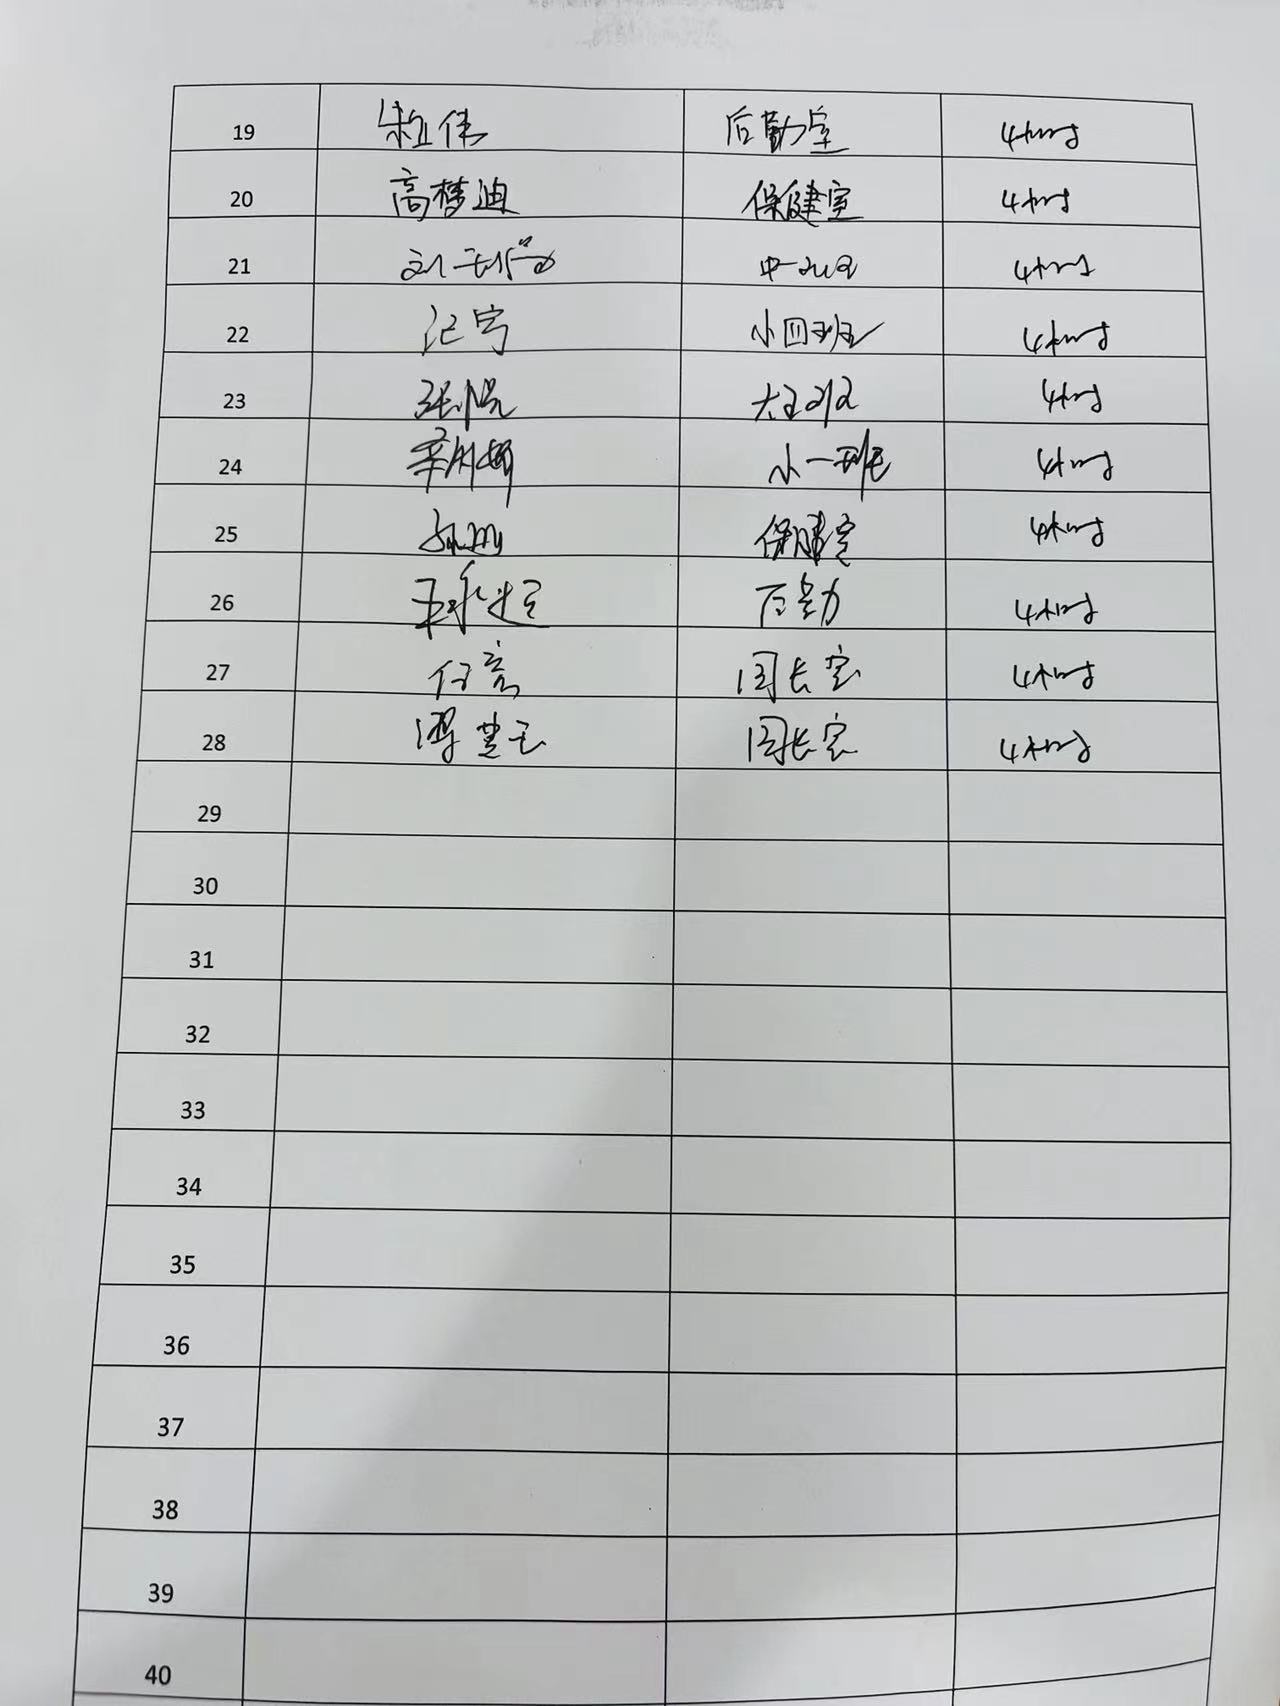 19 后勤室 4小时
20 高梦迪 保健室 4小时
21 中一班 4小时
22 江宁 小四班 4小时
23 张悦 大五班 4小时
24 小一班 4小时
25 保健室 4小时
26 后勤 4小时
27 任亮 园长室 4小时
28 园长室 4小时
29
30
31
32
33
34
35
36
37
38
39
40